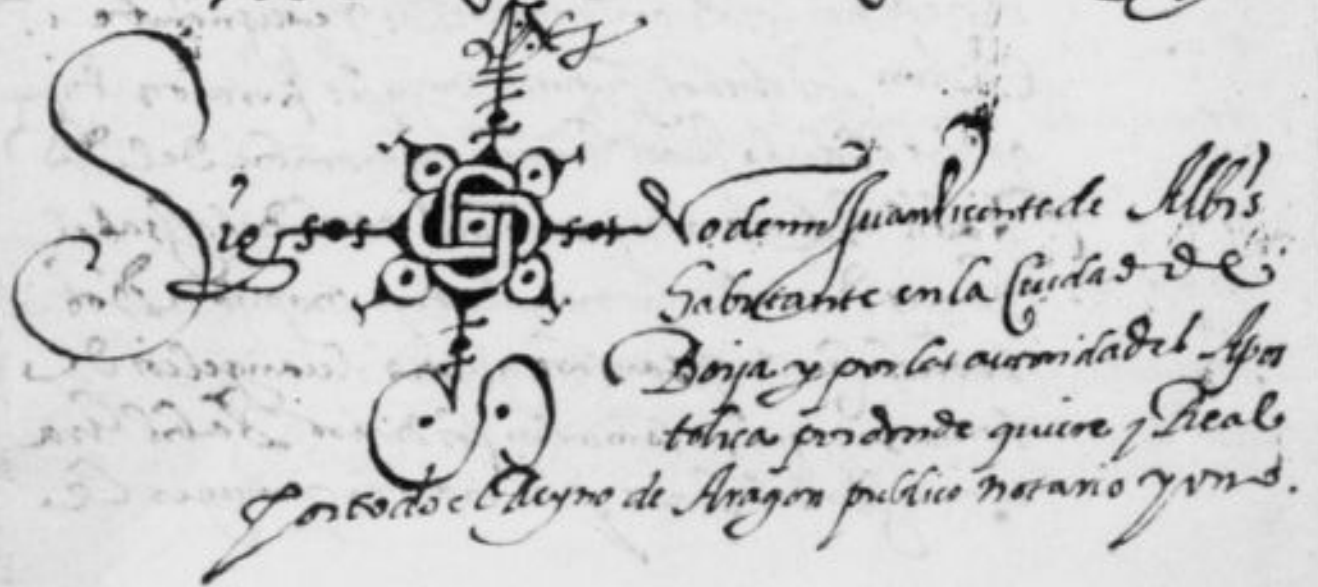 Sig no de mi Juan Vicente de Albis
habitante en la Ciudad de
Borja y por las autoridades Apos
tolica por donde quiere y Real
Por todo el Reyno de Aragon publico notario y